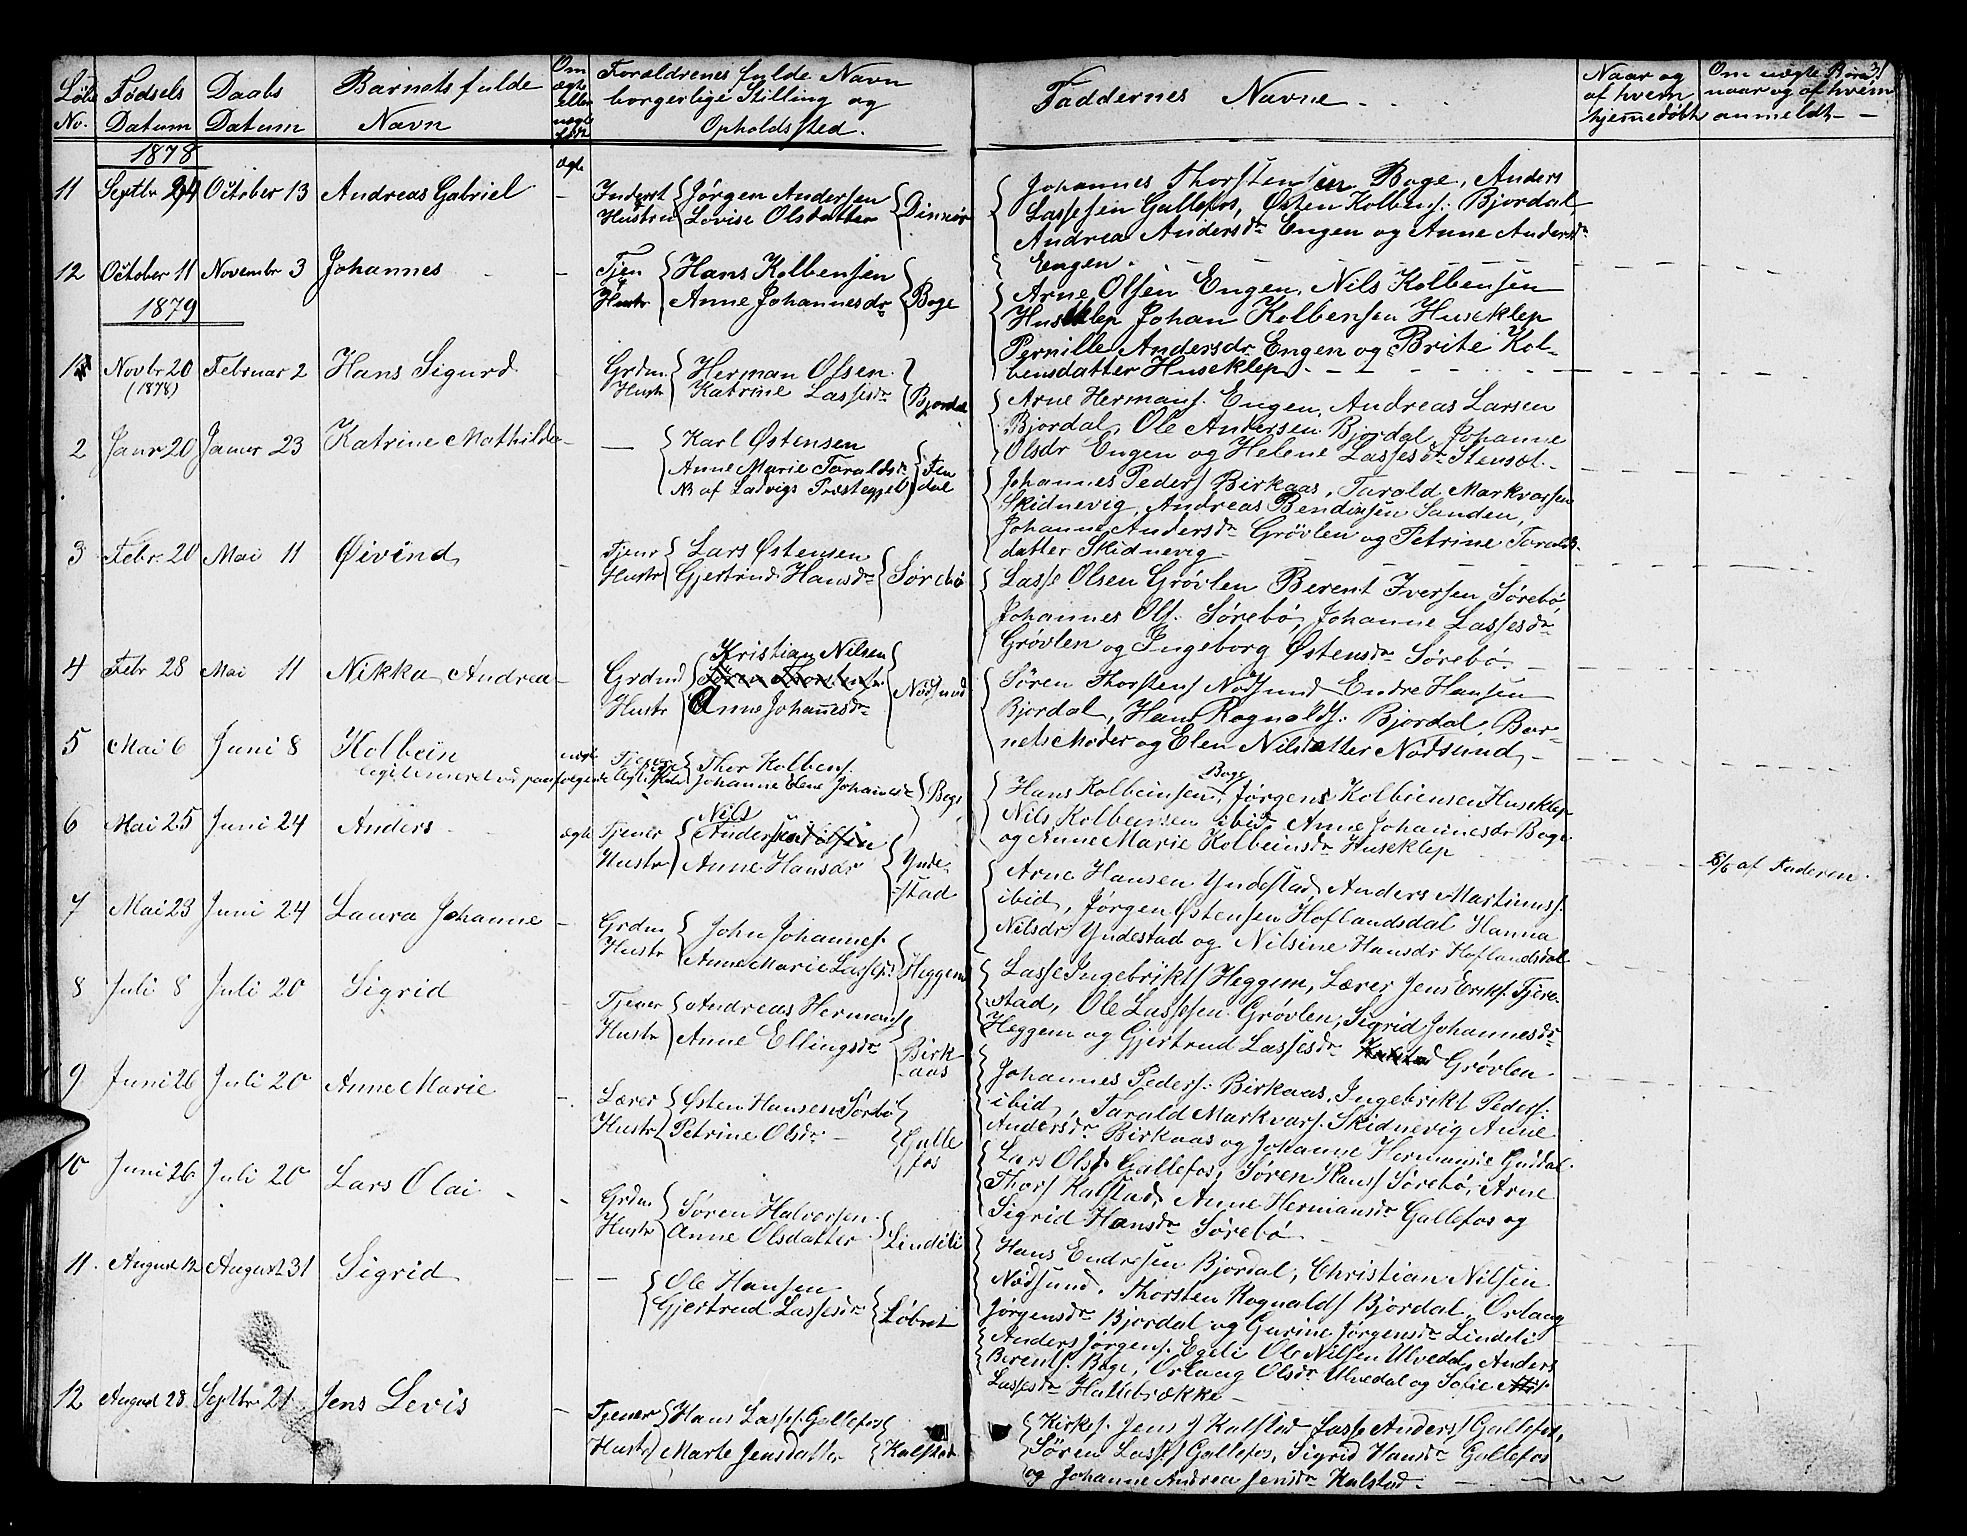 Löbe No.
Fødsels Datum
Daabs Datum
Barnets fulde Navn
Om ægte eller uægte født
Forældrenes fulde Navn
borgerlige Stilling og
Opholdssted.
Faddernes Navne
Naar og af hvem hjemedøbt
Om uægte Børn naar og af hvem anmeldt
31
1878
11 Septbr 24 October 13 Andreas Gabriel ægte
Inderst Jørgen Andersen
Hustru Lovise Olsdatter
Johannes Thorstensen Boge, Anders
Lassesen Gallefos, Østen Kolbens: Bjordal,
Andrea Andersdr Engen og Anne Andersdr
Engen.
12 October 11 Novembr 3 Johannes
Tjen Hans Kolbensen
Hustr Anne Johannesdr Boge
Arne Olsen Engen, Nils Kolbensen
Huseklep Johan Kolbensen Huseklep
Pernille Andersdr Engen og Brite Kol-
bensdatter Huseklep.
1879
1 Novbr 20 (1878) Februar 2 Hans Sigurd
Grdm. Herman Olsen
Hustr Katrine Lassesdr Bjordal
Arne Hermans. Engen, Andreas Larsen
Bjordal, Ole Andersen Bjordal, Johanne
Olsdr Engen og Helene Lassesdr Stensæt.
2 Janr 20 Januar 23 Katrine Mathilda
Karl Østensen
Anne Marie Taraldsdr
NB af Ladvigs Præstegjeld
Johannes Peders Birkaas, Tarald Markvorsen
Skidnevig, Andreas Bendixsen Sanden,
Johanne Andersdr Grøvlen og Petrine Taralds-
datter Skidnevig
3 Febr. 20 Mai 11 Øivind
Tjenr Lars Østensen
Hustr Gjertrud Hansdr Sørebø
Lasse Olsen Grøvlen Berent Iversen Sørebø
Johannes Ols. Sørebø, Johanne Lassesdr
Grøvlen og Ingeborg Østensdr Sørebø.
4 Febr 28 Mai 11 Nikka Andrea
Kristian Nilsen
Grdmd
Hustr Anne Johanesdr Nödsund
Søren Thorstens Nödsund Endre Hansen
Bjordal, Hans Rognalds: Bjordal, Bar-
nets Moder og Elen Nilsdatter Nödsund
5 Mai 6 Juni 8 Kolbein uægte
Tjener Thor Kolbens.
Johanne Elene Johanesdr Boge
Hans Kolbeinsen, Boge Jørgens Kolbiensen Huseklep
Nils Kolbensen ibid Anne Johannesdr Boge
og Anne Marie Kolbeinsdr Huseklep
8/6 af Faderen.
6 Mai 25 Juni 24 Anders ægte
Nils
Tjener Andersen
Hustr Anne Hansdr Ynde-
stad
Arne Hansen Yndestad, Anders Martinuss.
ibid, Jørgen Østensen Hoflandsdal Hanna
Nilsdr Yndestad og Nilsine Hansdr Hoflandsdal
7 Mai 23 Juni 24 Laura Johanne
Grdm John Johannes.
Hustr Anne Marie Lassesdr Heggem
Lasse Ingebrikts Heggem, Lærer Jens Eriks. Tjere-
stad, Ole Lassesen Grøvlen, Sigrid Johannesdr
Heggem og Gjertrud Lassesdr Grøvlen
8 Juli 8 Juli 20 Sigrid
Tjener Andreas Hermans
Hustr Anne Ellingsdr Birk-
aas
Johannes Peders: Birkaas, Ingebrikt Peders:
ibid, Tarald Markvars. Skidnevig Anne
Andersdr Birkaas og Johanne
9 Juni 26 Juli 20 Anne Marie
Lærer Østen Hansen Sørbø
Hustr Petrine Olsdr Galle
fos
Lars Ols. Gallefos, Søren Hans Sørebø, Arne
Thors Kalstad, Anne Hermansdr Gallefos og
Sigrid Hansdr Sørebø
10 Juni 26 Juli 20 Lars Olai
Grdm. Søren Halvorsen
Hustr Anne Olsdatter Lindeli
Hans Endresen Bjordal, Christian Nilsen
Nödsund. Thorsten Rognalds Bjordal, Orlaug
Jørgensdr Bjordal og Gurine Jørgensdr Lindeli
11. August 12 August 31 Sigrid
Ole Hansen
Gjertrud Lassesdr
Anders Jørgens. Egeli Ole Nilsen Ulvedal, Anders
Berents. Boge, Orlaug Olsdr Ulvedal og Sofie
Lassesdr Hallebrække
12 August 28 Septbr 21 Jens Levis
Tjener Hans Lasses. Gallefos
Hustr Marte Jensdatter Kalstad
Kirkes. Jens J Kalstad Lasse Anders Gallefos,
Søren Lasses Gallefos, Sigrid Hansdr Gallefos
og Johanne Andrea Jensdr Kalstad.